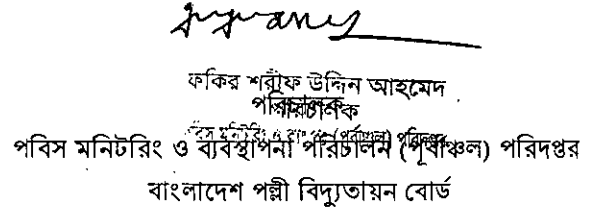 ফকির শরীফ উদ্দিন আহমেদ
পরিচালক
পবিস মনিটরিং ও ব্যবস্থাপনা পরিচালন (পূর্বাঞ্চল) পরিদপ্তর
বাংলাদেশ পল্লী বিদ্যুতায়ন বোর্ড